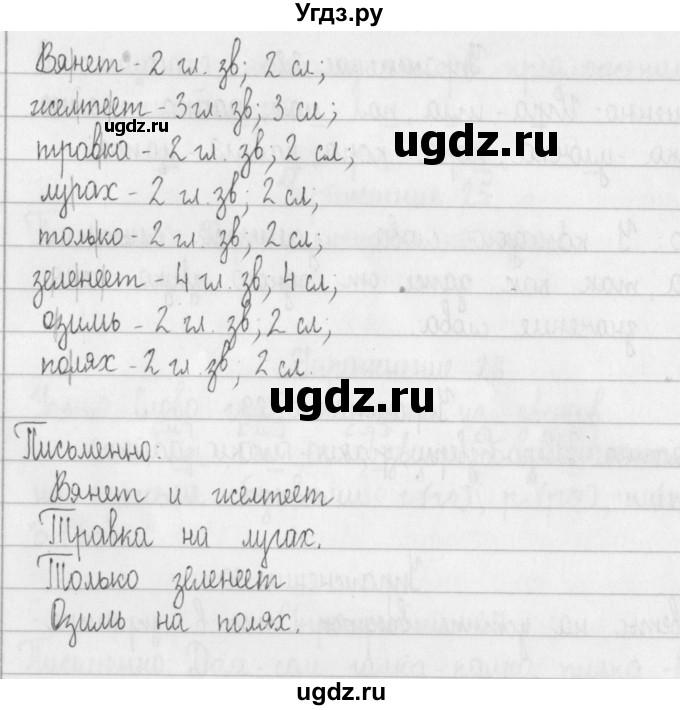 Угдз.ру
Вянет - 2 гл. зв; 2 сл;
желтеет - 3 гл. зв; 3 сл;
травка - 2 гл. зв; 2 сл;
лугах - 2 гл. зв; 2 сл;
только - 2 гл. зв; 2 сл;
зеленеет - 4 гл. зв; 4 сл;
озимь - 2 гл. зв; 2 сл;
полях - 2 гл. зв; 2 сл.
Письменно:
Вянет и желтеет
Травка на лугах.
Только зеленеет
Озимь на полях.
ugdz.ru
ugdz.ru
ugdz.ru
ugdz.ru
ugdz.ru
ugdz.ru
ugdz.ru